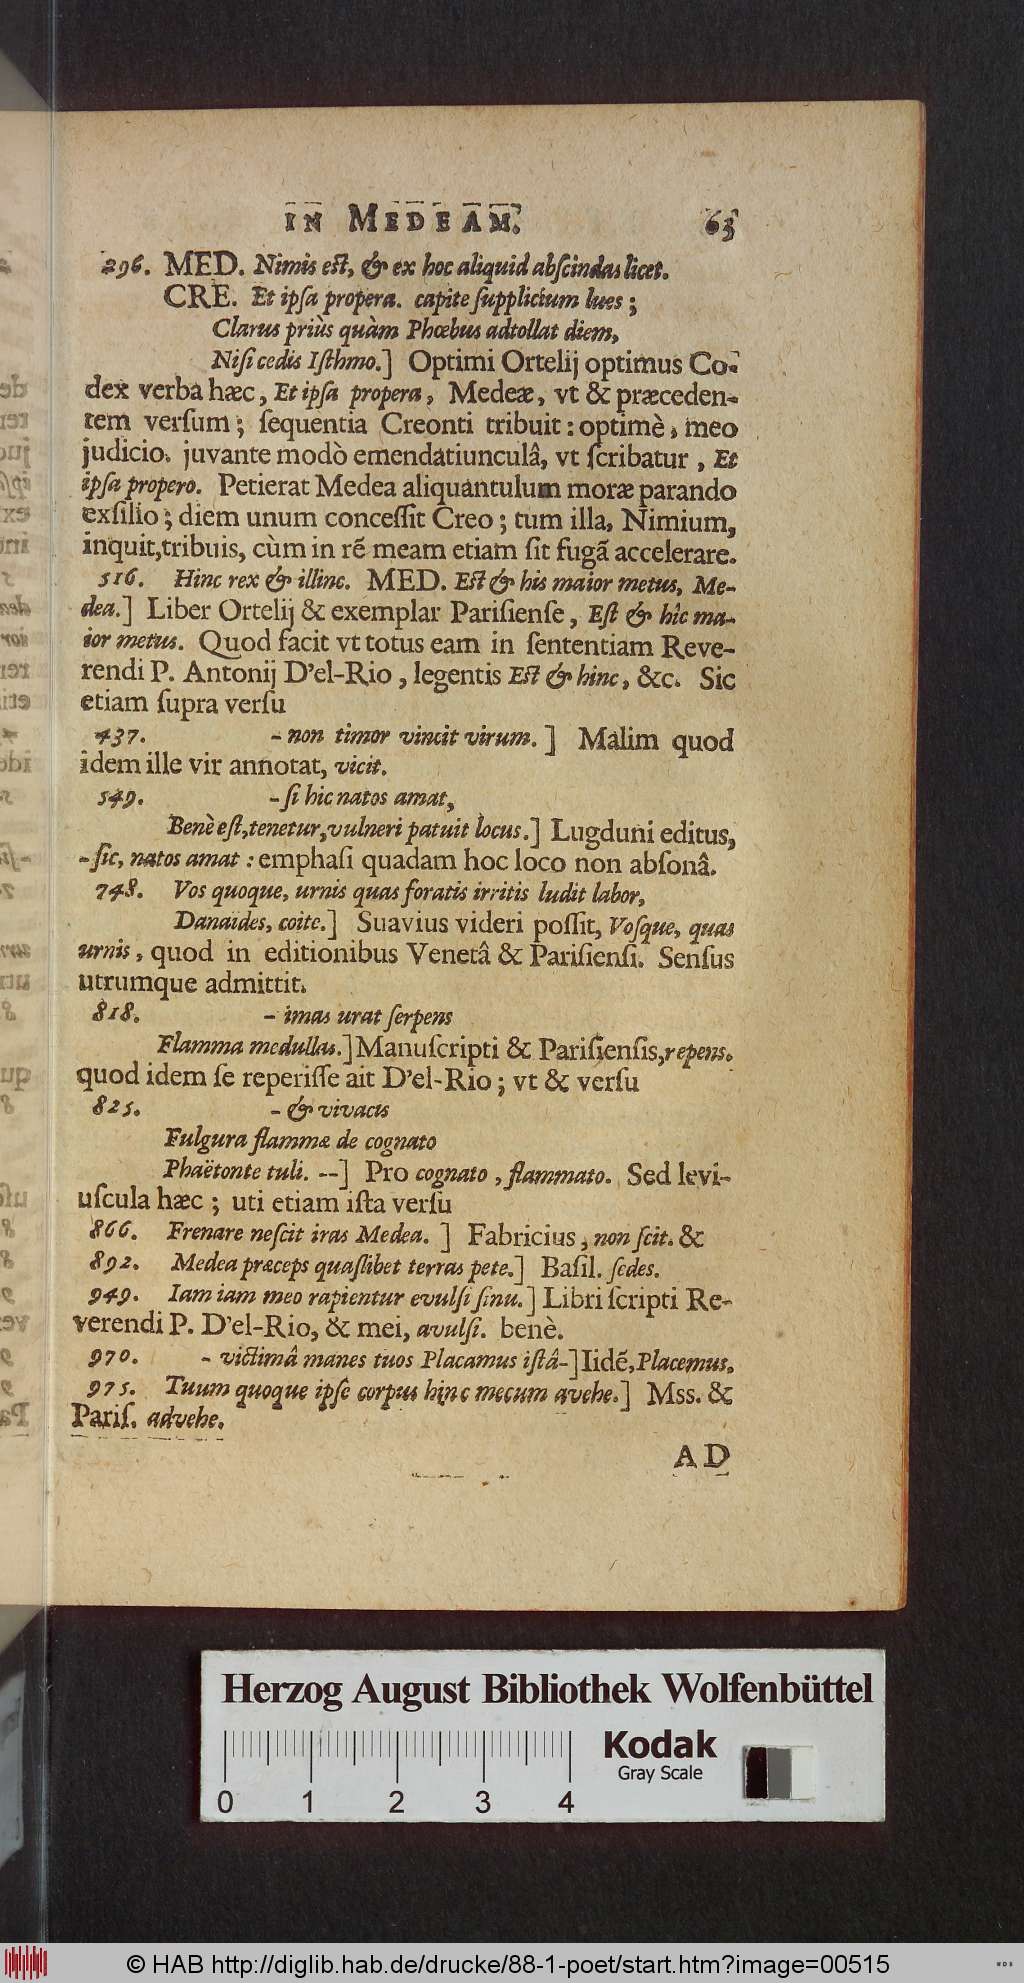 IN MEDEAM. 63
296. MED. Nimis est, & ex hoc aliquid abſcindas licet.
CRE. Et ipſa propera. capite ſupplicium lues;
Clarus priùs quàm Phœbus adtollat diem,
Niſi cedis Iſthmo.] Optimi Ortelij optimus Co-
dex verba hæc, Et ipſa propera, Medeæ, vt & præceden-
tem verſum; ſequentia Creonti tribuit: optimè, meo
judicio. juvante modò emendatiunculâ, vt ſcribatur, Et
ipſa propero. Petierat Medea aliquantulum moræ parando
exſilio; diem unum conceſſit Creo; tum illa, Nimium,
inquit,tribuis, cùm in rē meam etiam ſit fugā accelerare.
516. Hinc rex & illinc. MED. Eſt & his maior metus, Me-
dea.] Liber Ortelij & exemplar Pariſienſe, Eſt & hîc ma-
ior metus. Quod facit vt totus eam in ſententiam Reve-
rendi P. Antonij D'el-Rio, legentis Eſt & hinc, &c. Sic
etiam ſupra verſu
437. - non timor vincit virum.] Malim quod
idem ille vir annotat, vicit.
549. - ſi hic natos amat,
Benè eſt,tenetur,vulneri patuit locus.] Lugduni editus,
- ſic, natos amat: emphaſi quadam hoc loco non abſonâ.
748. Vos quoque, urnis quas foratis irritis ludit labor,
Danaides, coite.] Suavius videri poſſit, Voſque, quas
urnis, quod in editionibus Venetâ & Pariſienſi. Senſus
utrumque admittit.
818. - imas urat ſerpens
Flamma medullas.] Manuſcripti & Pariſienſis,repens.
quod idem ſe reperiſſe ait D'el-Rio; vt & verſu
825. - & vivacis
Fulgura flammæ de cognato
Phaëtonte tuli. --] Pro cognato, flammato. Sed levi-
uſcula hæc; uti etiam iſta verſu
866. Frenare neſcit iras Medea.] Fabricius, non ſcit. &
892. Medea præceps quaſlibet terras pete.] Baſil. ſedes.
949. Iam iam meo rapientur evulſi ſinu.] Libri ſcripti Re-
verendi P. D'el-Rio, & mei, avulſi. benè.
970. - victimâ manes tuos Placamus iſtâ-] Iidē, Placemus.
975. Tuum quoque ipſe corpus hinc mecum avehe.] Mss. &
Pariſ. advehe.
AD
Herzog August Bibliothek Wolfenbüttel
Kodak
Gray Scale
0 1 2 3 4
© HAB http://diglib.hab.de/drucke/88-1-poet/start.htm?image=00515